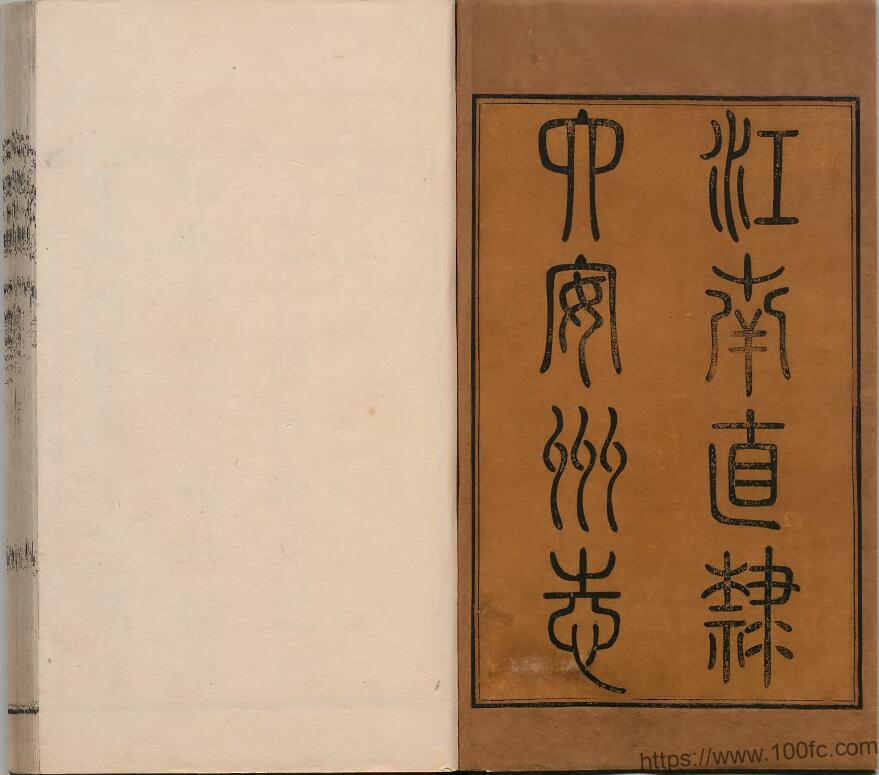 江南直隸
六安州志
https://www.100fc.com